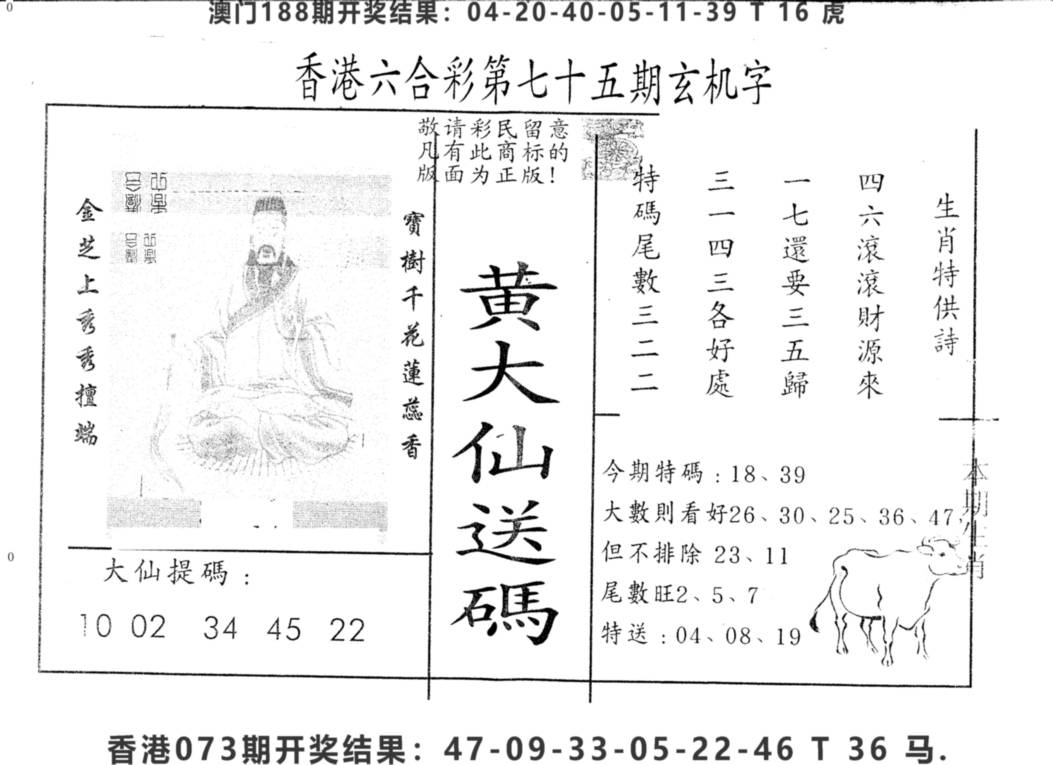 澳门188期开奖结果：04-20-40-05-11-39 T 16 虎
香港六合彩第七十五期玄机字
敬请彩民留意
凡有此商标的
版面为正版！
金芝上秀秀擅端
寶樹千花蓮蕊香
黄大仙送碼
生肖特供詩
四六滾滾財源來
一七還要三五歸
三一四三各好處
特碼尾數三二二
今期特碼：18、39
大數則看好26、30、25、36、47,
但不排除 23、11
尾數旺2、5、7
特送：04、08、19
本期生肖
大仙提碼：
10 02 34 45 22
香港073期开奖结果：47-09-33-05-22-46 T 36 马.
0
0